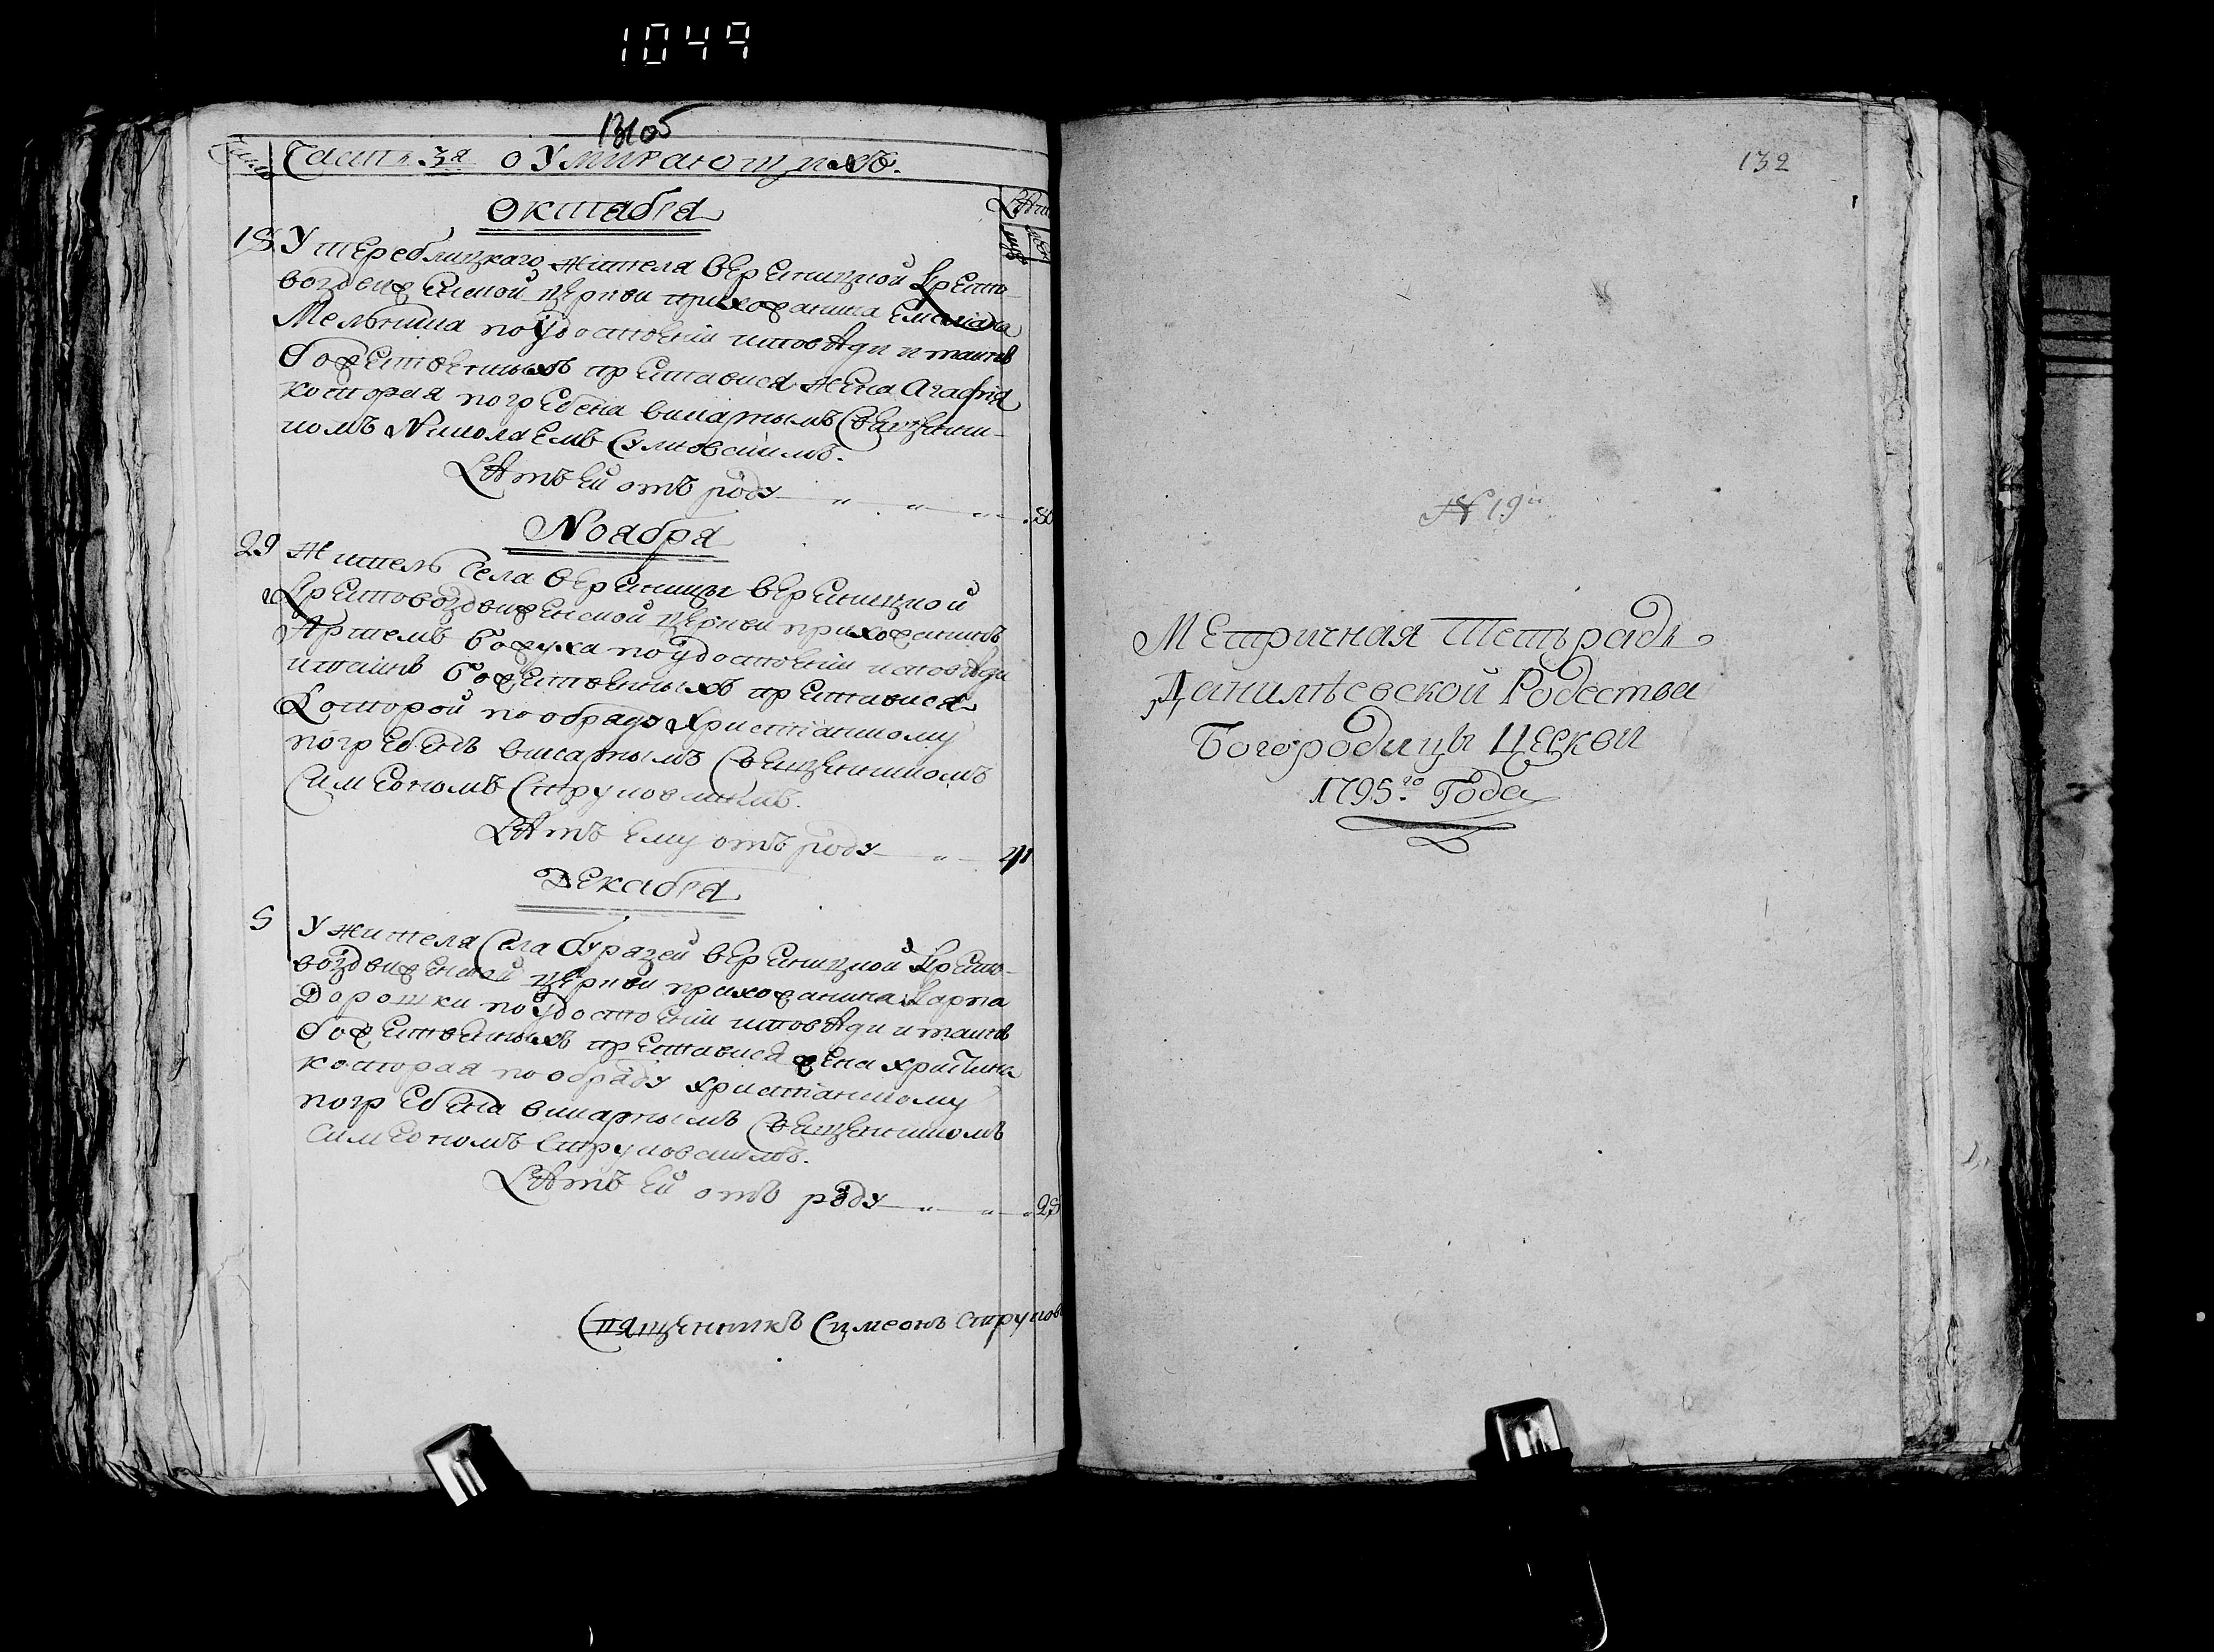 1049
131об
Число
Часть 3я о Умирающихъ.
Лѣт
Октября
муж
жен
18 У тереблицкаго жителя вереницкой Кресто-
воздвиженской церкви прихожанина Емелiана
Мельника поудостоенiи исповѣди и таинъ
божественныхъ преставися жена Агафiя
которая погребена викарнымъ Священни-
комъ Николаемъ Сулковскимъ.
Лѣтъ ей отъ роду 80
Ноября
29 Житель Села Вереницы вереницкой
Крестовоздвиженской церкви прихожанинъ
Артемъ Божука поудостоенiи исповѣди
итаинъ божественныхъ преставися
Которой пообряду христiанскому
погребенъ викарнымъ Священникомъ
Симеономъ Струковскимъ.
Лѣтъ ему отъ роду 41
Декабря
5 У жителя Села бурязей вереницкой Кресто-
воздвиженской церкви прихожанина Карпа
Дорошки поудостоенiи исповѣди и таинъ
божественныхъ преставися жена христина
которая пообряду христiанскому
погребена викарнымъ Священникомъ
Симеономъ Струковскимъ.
Лѣтъ ей отъ роду 25
Священникъ Симеонъ Струков
132
№ 19й
Метричная Тетьрадь
Данилѣевской Родества
Богородицы Церкви
1795го Года